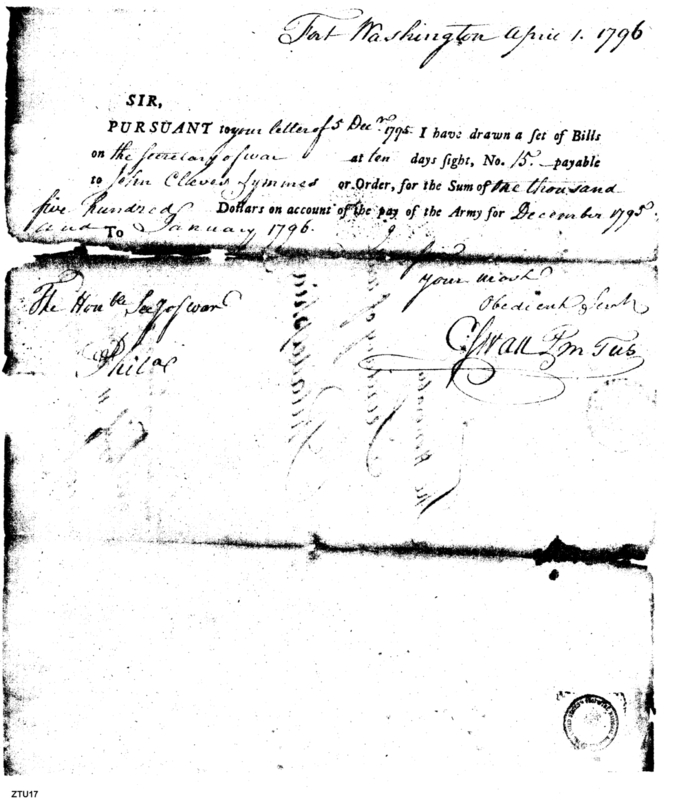 Fort Washington April 1. 1796
SIR,
PURSUANT to your letter of 5 Decr. 1795. I have drawn a set of Bills
on the Secretary of war at ten days sight, No. 15. payable
to John Cleves Symmes or Order, for the Sum of One thousand
five hundred Dollars on account of the pay of the Army for December 1795.
and January 1796.
To
your most
The Honble Secy of war
Obedient Servt
C. Swan P M T U S
Philaa
ZTU17